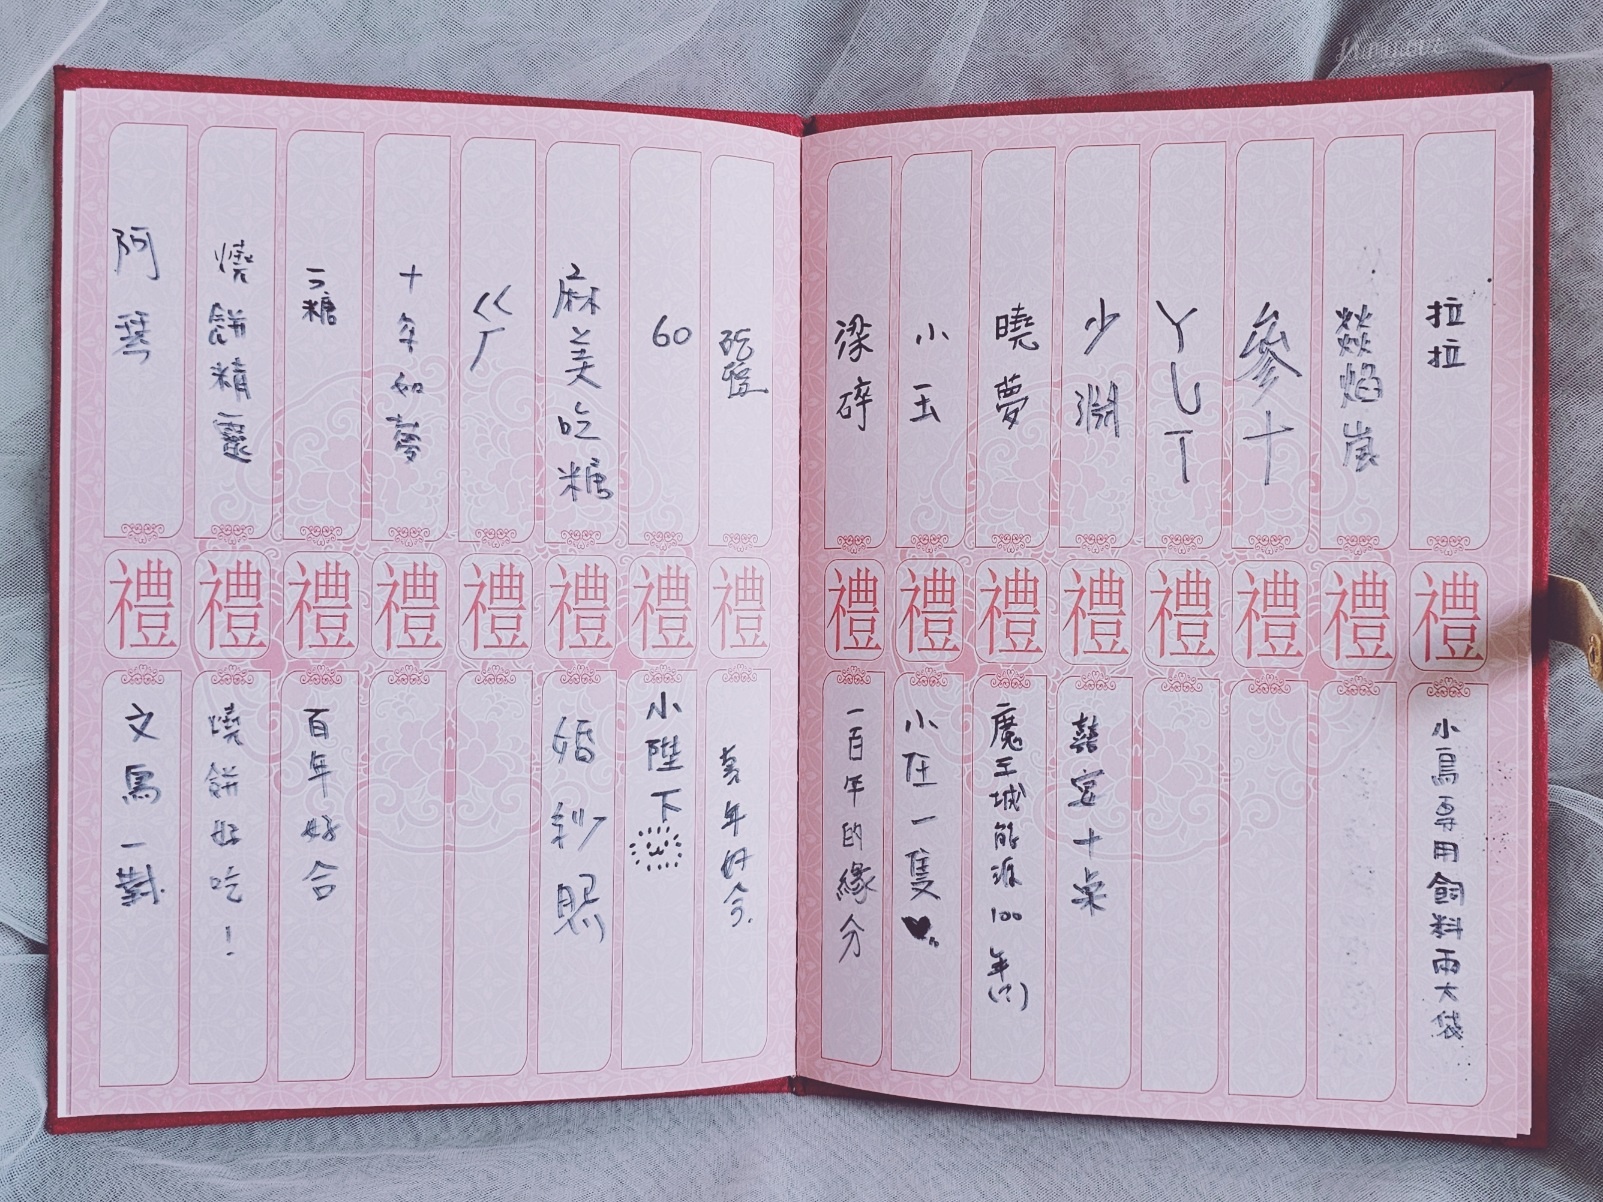 拉拉
禮
小鳥專用飼料兩大袋
燚焰嵐
禮
參十
禮
ㄚㄩㄒ
禮
少淵
禮
囍宮十桌
曉夢
禮
魔王城能源100年(?)
小玉
禮
小在一隻
梁碎
禮
一百年的緣分
禮
年好合
60
禮
小陛下
麻美吃糖
禮
婚紗照
ㄍㄏ
禮
十年如夢
禮
糖
禮
百年好合
燒餅精靈
禮
燒餅好吃!
阿琴
禮
文鳥一對